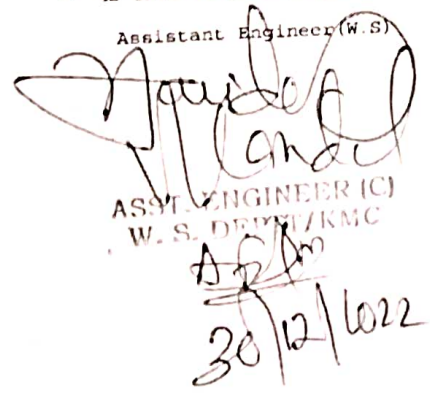 Assistant Engineer(W.S)
Mandal
ASST. ENGINEER (C)
W. S. DEPTT/KMC
30/12/2022